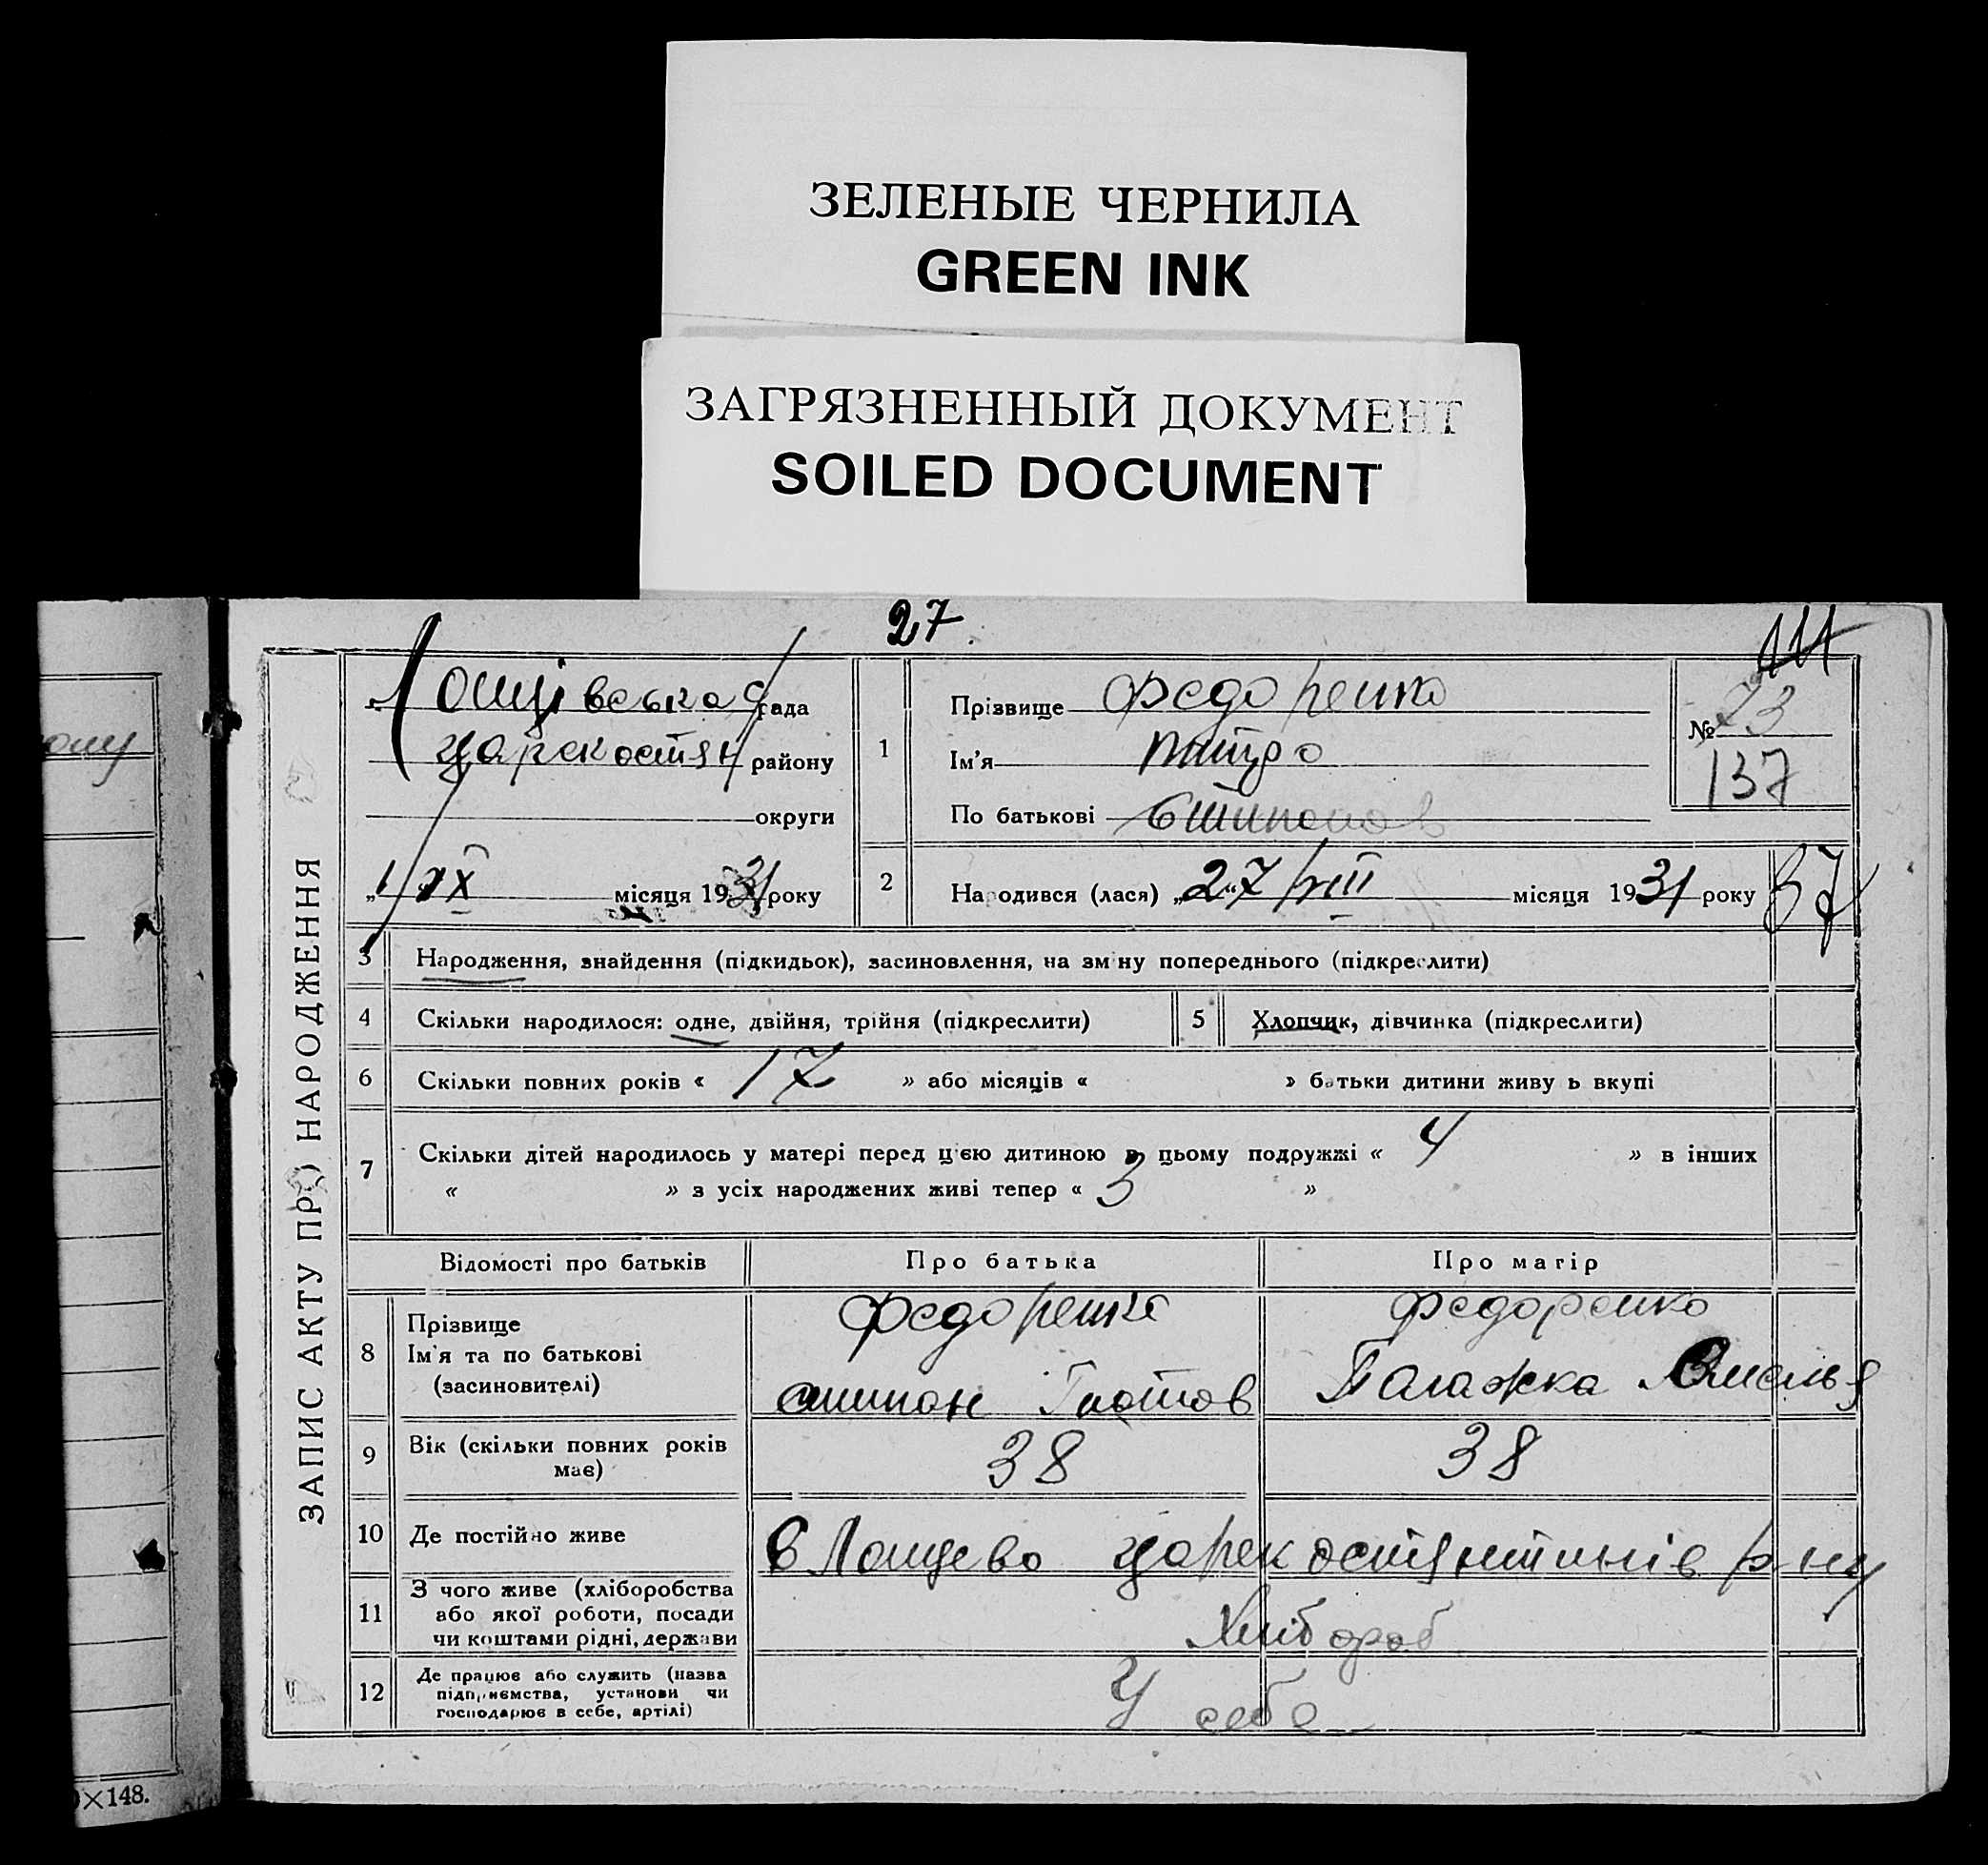 ЗЕЛЕНЫЕ ЧЕРНИЛА
GREEN INK
ЗАГРЯЗНЕННЫЙ ДОКУМЕНТ
SOILED DOCUMENT
27
ЗАПИС АКТУ ПРО НАРОДЖЕННЯ
Лощівська с/рада
Царекостян району
округи
„1/IX місяця 1931 року
1
Прізвище Федоренко
Ім'я Питро
По батькові Стипанов
№ 73
137
2
Народився (лася) „27/VIII місяця 1931 року
37
3 Народження, знайдення (підкидьок), засиновлення, на зміну попереднього (підкреслити)
4 Скільки народилося: одне, двійня, трійня (підкреслити)
5 Хлопчик, дівчинка (підкреслити)
6 Скільки повних років « 17 » або місяців « » батьки дитини живуть вкупі
7 Скільки дітей народилось у матері перед цією дитиною в цьому подружжі « 4 » в інших
« » з усіх народжених живі тепер « 3 »
Відомості про батьків Про батька Про матір
8 Прізвище
Ім'я та по батькові
(засиновителі)
Федоренко
Стипан Гнатов
Федоренко
Палажка Омелья
9 Вік (скільки повних років має) 38 38
10 Де постійно живе с Лощево Царекостянтинів р-ну
11 З чого живе (хліборобства
або якої роботи, посади
чи коштами рідні, держави
Хлібороб
12 Де працює або служить (назва
підприємства, установи чи
господарює в себе, артілі)
У себе
×148.